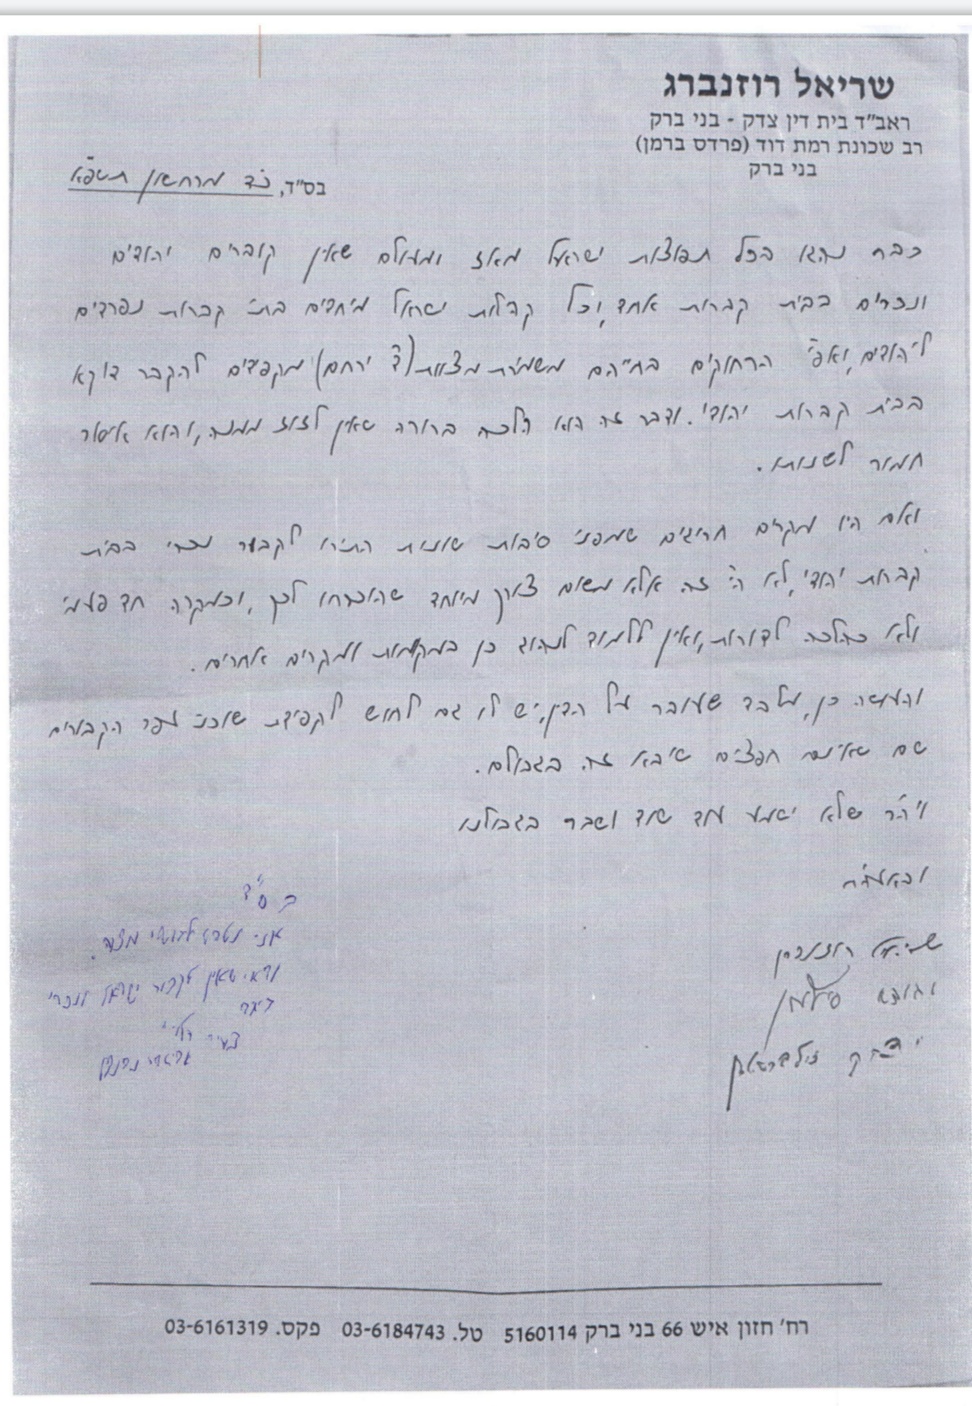 שריאל רוזנברג
ראב"ד בית דין צדק - בני ברק
רב שכונת רמת דוד (פרדס ברמן)
בני ברק
בס"ד, כ"ד מרחשון תשפ"א
כבר נהגו בכל תפוצות ישראל מאז ומעולם שאין קוברים יהודים
ונכרים בבית קברות אחד, וכל קהלות ישראל מיחדים בתי קברות נפרדים
ליהודים, ואפי' הרחוקים בחייהם משמירת מצוות (ד' ירחם) מקפידים להקבר דוקא
בבית קברות יהודי. ודבר זה הוא הלכה ברורה שאין לזוז ממנה, והוא איסור
חמור לשנות.
ואם היו מקרים חריגים שמפני סיבות שונות התירו לקבור נכרי בבית
קברות יהודי, לא הי' זה אלא משום צורך מיוחד שהוכרחו לכך, וכמקרה חד פעמי
ולא כהלכה לדורות, ואין ללמוד לנהוג כן במקומות ומקרים אחרים.
והעושה כן, מלבד שעובר על הדין, יש לו גם לחוש לקפידת שוכני עפר הקבורים
שם שאינם חפצים שיבא זה בגבולם.
ויה"ר שלא ישמע עוד שוד ושבר בגבולנו
ובאעה"ח
שריאל רוזנברג
יהודה סילמן
יצחק זילברשטיין
בס"ד
אני מצטרף
ודאי שאין לקבור ישראל ונכרי
ביחד
רח' חזון איש 66 בני ברק 5160114 טל. 03-6184743 פקס. 03-6161319